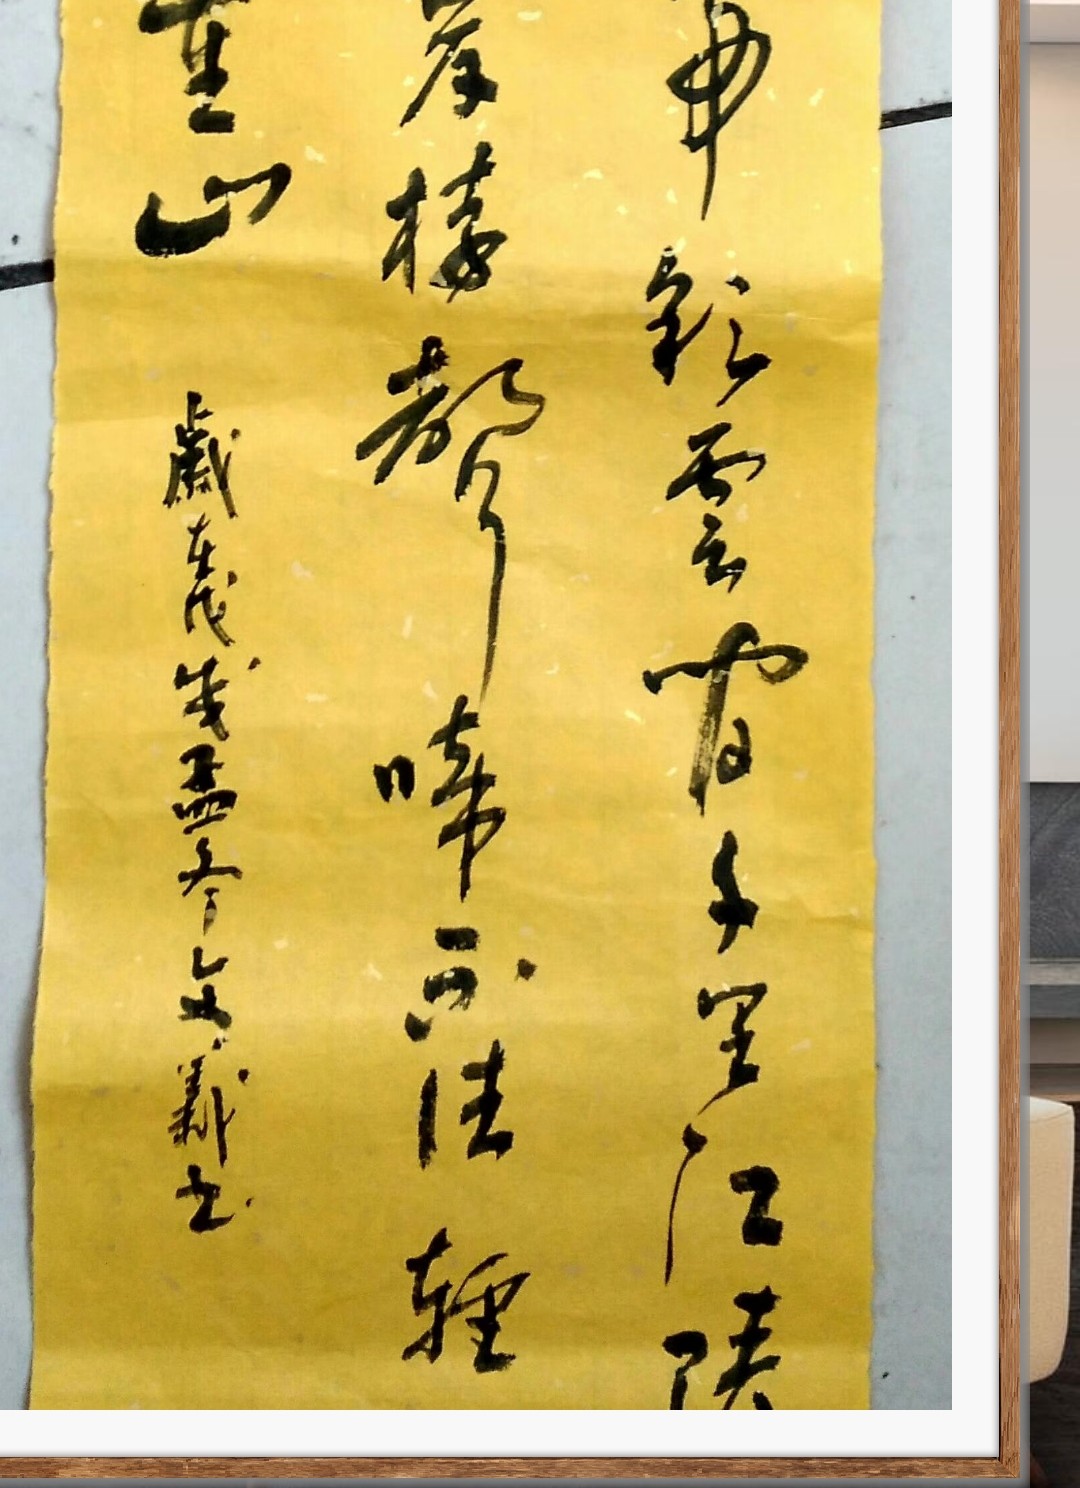 帝彩雲間千里江陵
岸猿聲啼不住輕
重山
歲在戊戌孟冬文義书